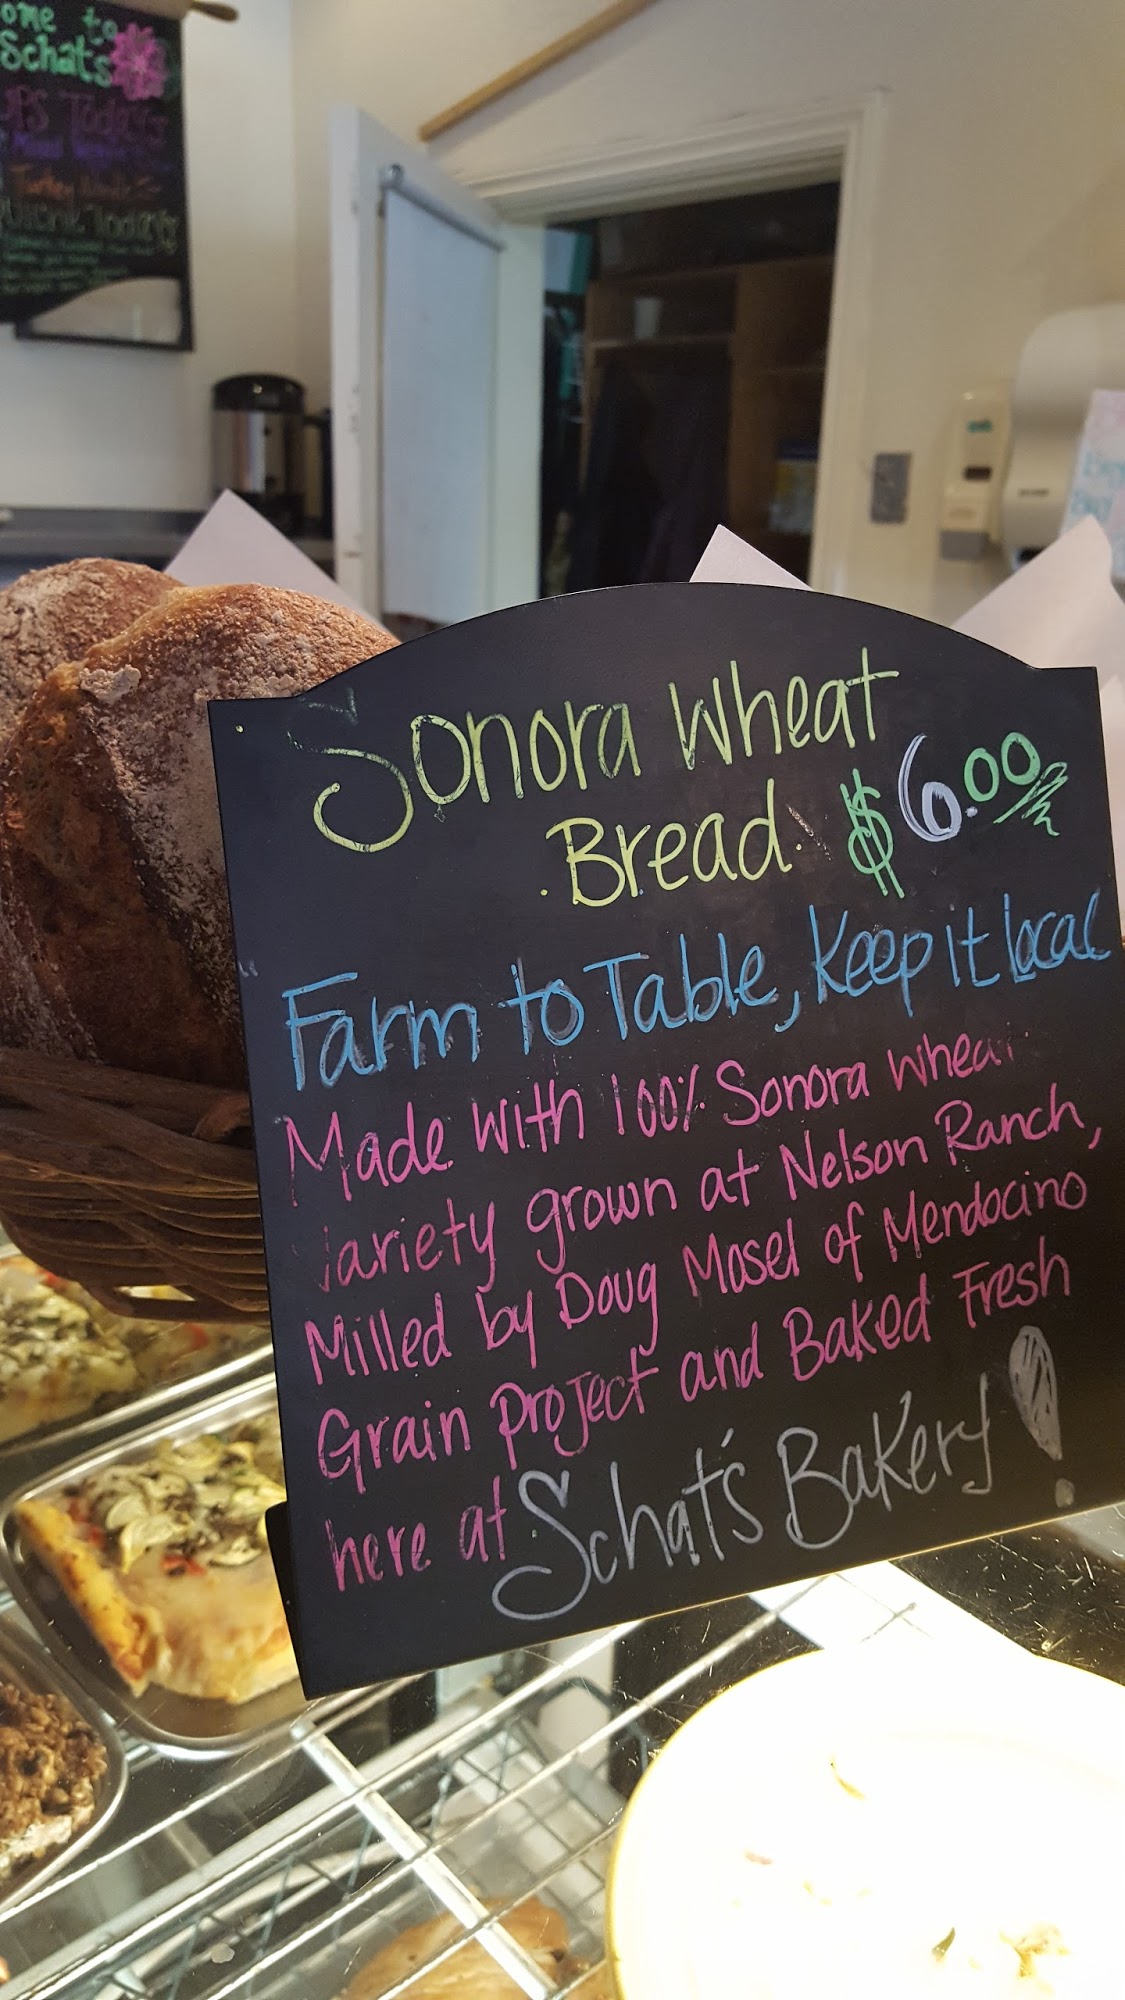 ome to
Schat's
Today
Turkey Noodle
Quiche Today
Sonora Wheat
Bread $6.00
Farm to Table, Keep it local
Made with 100% Sonora Wheat
Variety grown at Nelson Ranch,
Milled by Doug Mosel of Mendocino
Grain Project and Baked Fresh
here at Schat's Bakery!